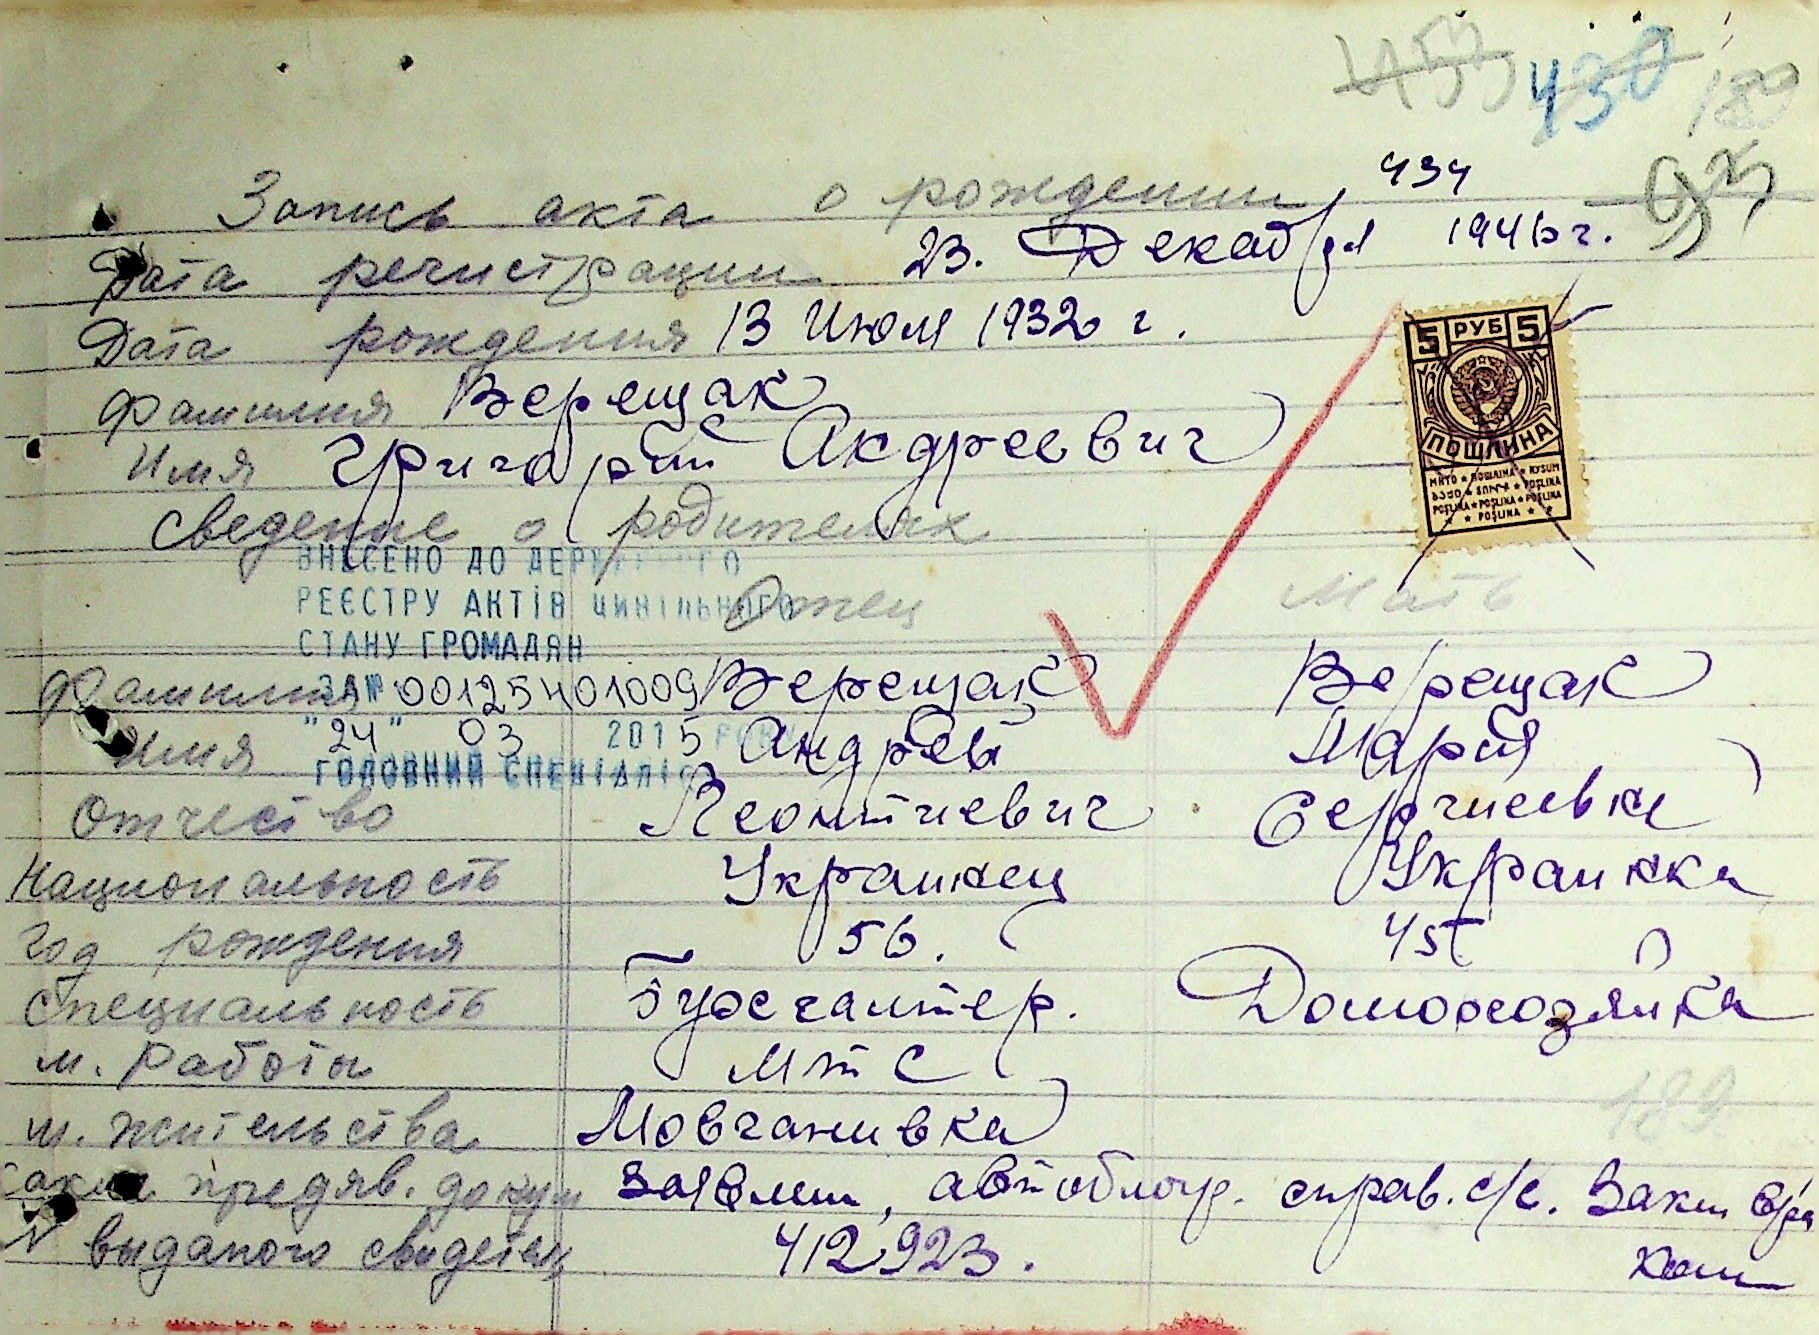 430
434
Запись акта о рождении
Дата регистрации 23. Декабря 1946 г.
Дата рождения 13 Июля 1932 г.
Фамилия Верещак
Имя Григорий Андреевич
Сведение о родителях
5 РУБ 5
ПОШЛИНА
МИТО ★ ПОШЛІНА ★ RÜSUM
POŞLINA ★ POŞLINA ★ POŞLINA
★ ★ POŞLINA ★ ★
ВНЕСЕНО ДО ДЕРЖАВНОГО
РЕЄСТРУ АКТІВ ЦИВІЛЬНОГО
СТАНУ ГРОМАДЯН
ЗА № 00125401009
"24" 03 2015 РОКУ
ГОЛОВНИЙ СПЕЦІАЛІСТ
Отец Мать
Фамилия Верещак Верещак
Имя Андрей Мария
Отчество Леонтиевич Сергиевна
Национальность Украинец Украинка
Год рождения 56. 45
Специальность Бухгалтер. Домохозяйка
м. Работы МТС
м. жительства Мовчановка
189
предяв. докум Заявлен, справ. с/с.
N выданого свидетел 412923.